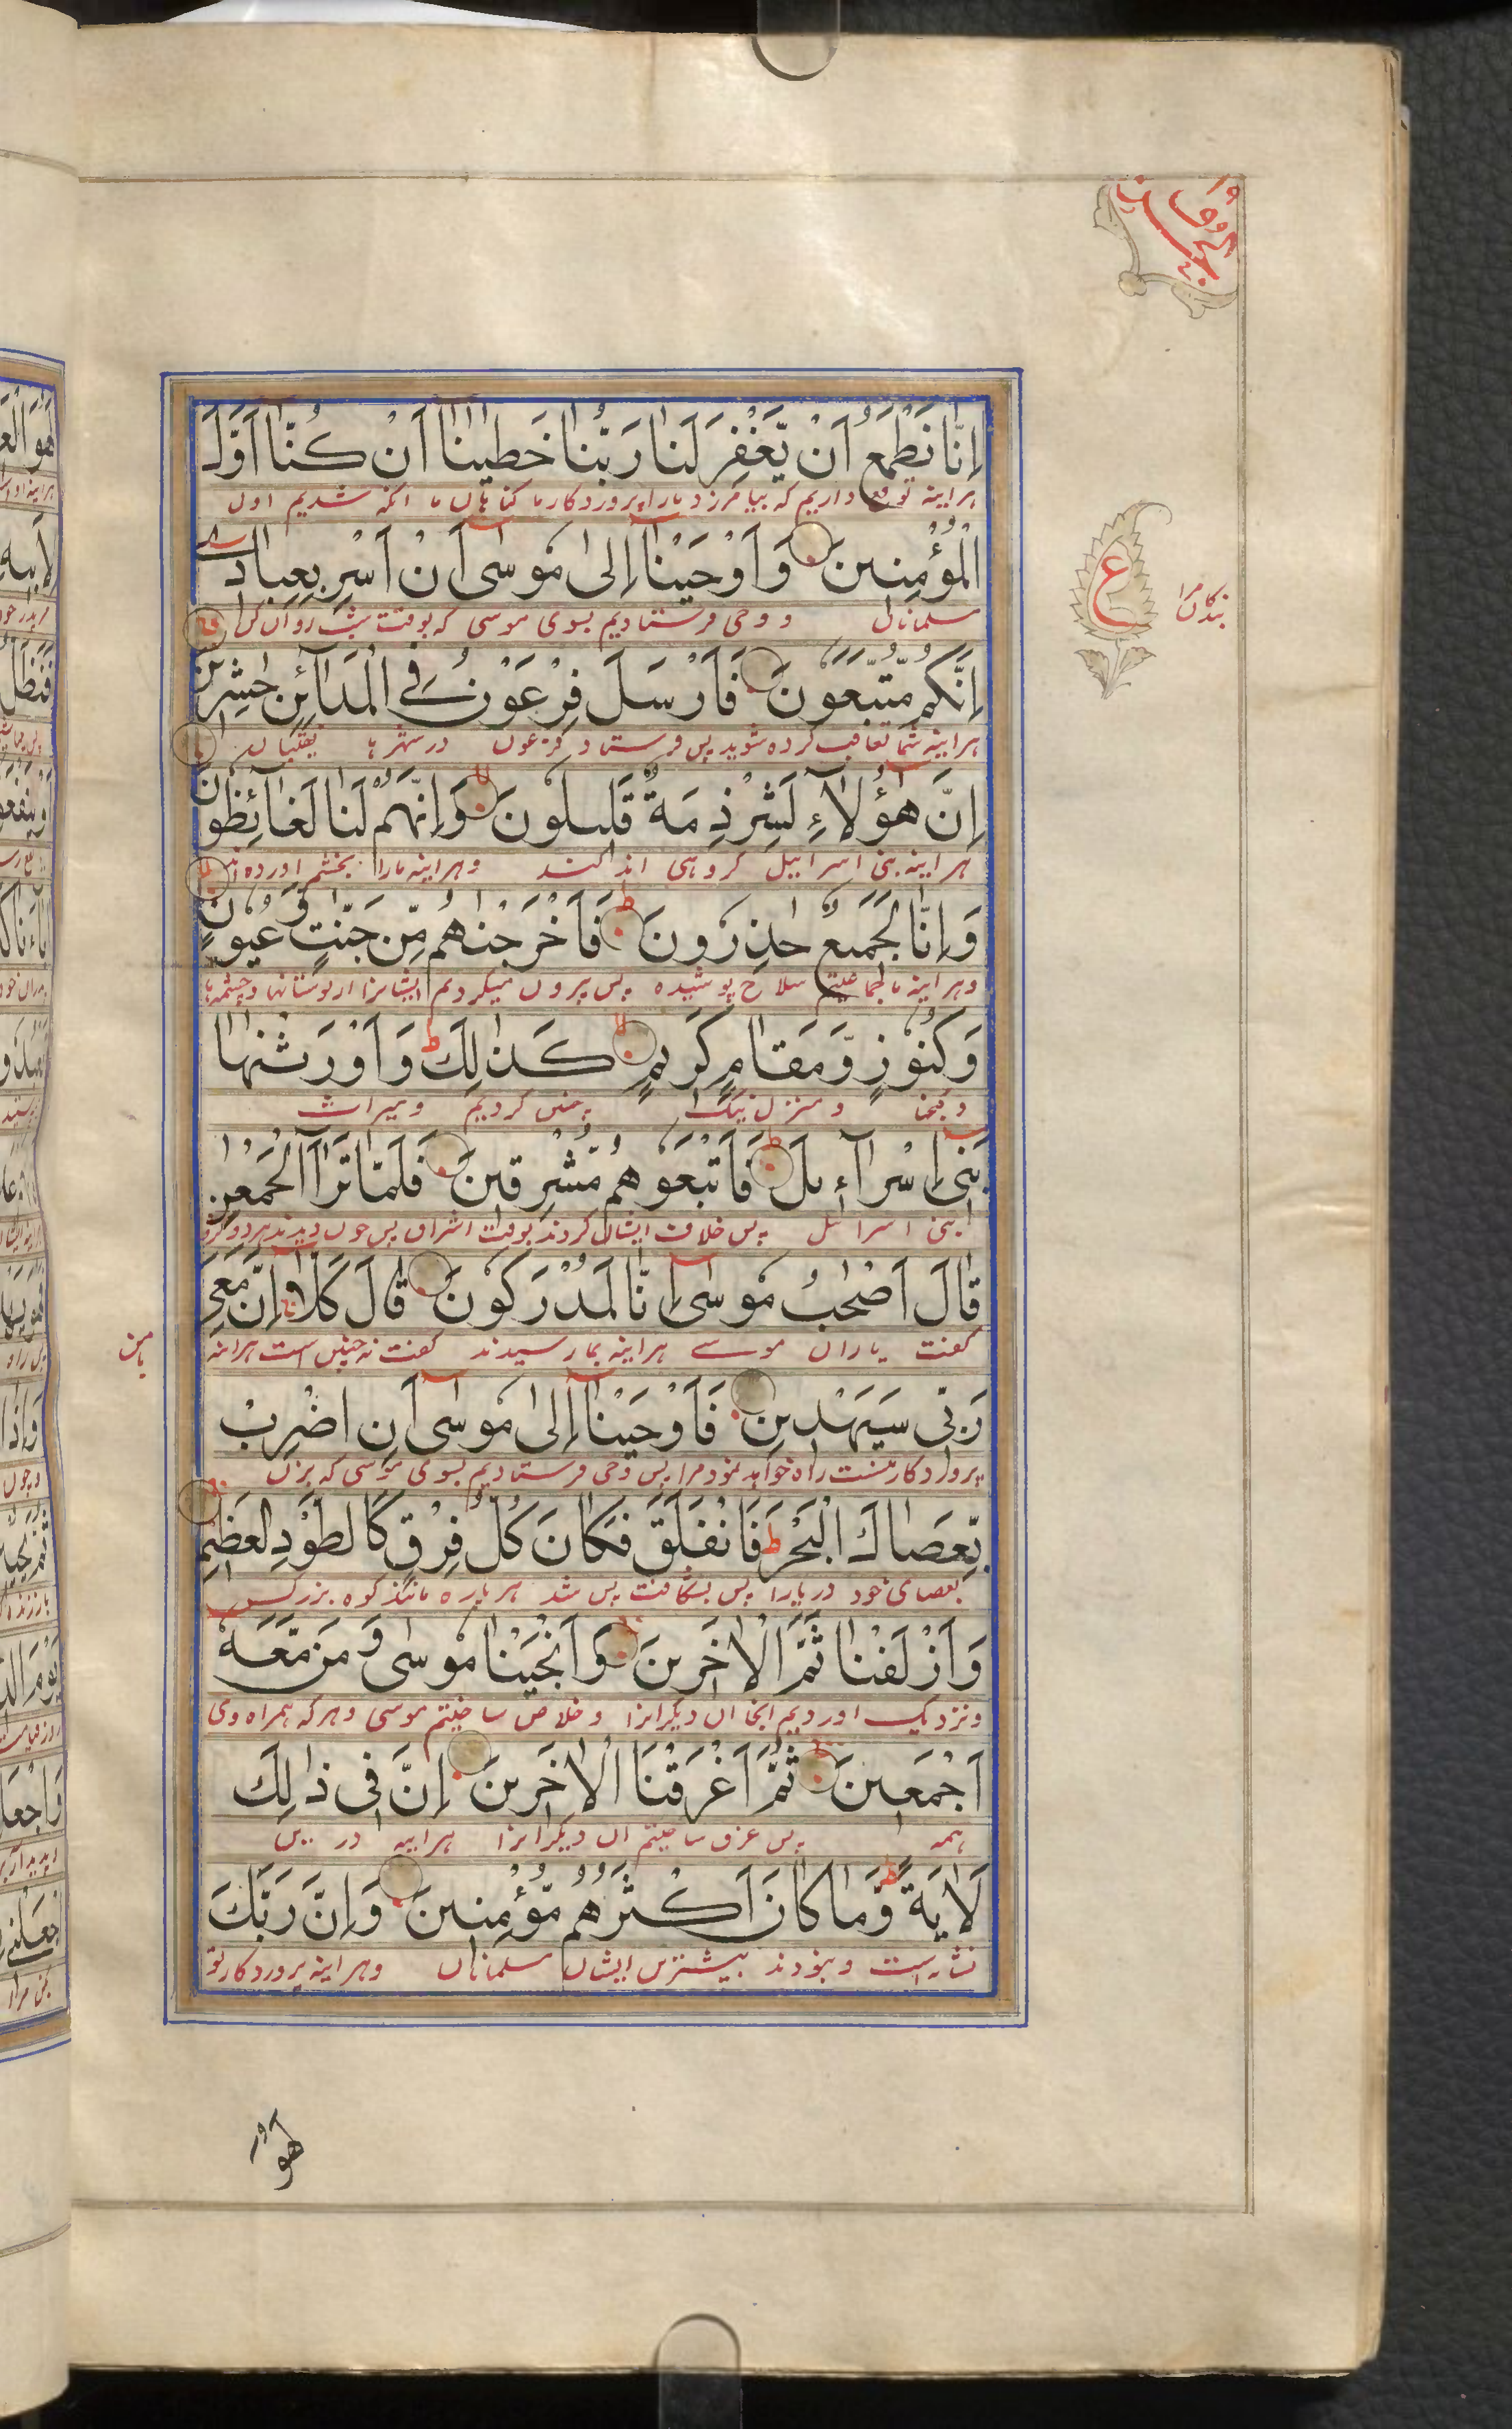 اِنَّا نَطْمَعُ اَنْ يَّغْفِرَ لَنَا رَبُّنَا خَطٰيٰنَا اَنْ كُنَّا اَوَّلَ
هراینه توقع داریم که بیامرزد مارا پروردکار ما کناهان ما انکه شدیم اول
الْمُؤْمِنِينَ وَاَوْحَيْنَا اِلٰى مُوسٰى اَنْ اَسْرِ بِعِبَادِى
مسلمانان و وحی فرستادیم بسوی موسی که بوقت شب روان کن
بندکان مرا
ع
اِنَّكُمْ مُّتَّبَعُونَ فَاَرْسَلَ فِرْعَوْنُ فِى الْمَدَآئِنِ حٰشِرِينَ
هراینه شما تعاقب کرده شوید پس فرستاد فرعون در شهرها نقیبان
اِنَّ هٰؤُلَآءِ لَشِرْذِمَةٌ قَلِيلُونَ وَاِنَّهُمْ لَنَا لَغَآئِظُونَ
هراینه بنی اسراییل کروهی اندکند وهراینه مارا بخشم اورده اند
وَاِنَّا لَجَمِيعٌ حٰذِرُونَ فَاَخْرَجْنٰهُمْ مِّنْ جَنّٰتٍ وَّعُيُونٍ
وهراینه ما جماعتیم سلاح پوشیده پس بیرون میکردیم ایشانرا از بوستانها وچشمه‌ها
وَكُنُوزٍ وَّمَقَامٍ كَرِيمٍ كَذٰلِكَ وَاَوْرَثْنٰهَا
وکنجها و منزل نیک چنین کردیم و میراث
بَنِى اِسْرَآءِيلَ فَاَتْبَعُوهُمْ مُّشْرِقِينَ فَلَمَّا تَرَآءَ الْجَمْعٰنِ
بنی اسرائیل پس ایشان کردند بوقت اشراق پس چون دیدند هر دو کروه
قَالَ اَصْحٰبُ مُوسٰى اِنَّا لَمُدْرَكُونَ قَالَ كَلَّا اِنَّ مَعِىَ
کفت یاران موسے هراینه بما رسیدند کفت نه چنین است هراینه
بامن
رَبِّى سَيَهْدِينِ فَاَوْحَيْنَا اِلٰى مُوسٰى اَنِ اضْرِبْ
پروردکار منست راه خواهد نمود مرا پس وحی فرستادیم بسوی موسی که بزن
بِّعَصَاكَ الْبَحْرَ فَانْفَلَقَ فَكَانَ كُلُّ فِرْقٍ كَالطَّوْدِ الْعَظِيمِ
بعصای خود دریارا پس بشکافت پس شد هر پاره مانند کوه بزرک
وَاَزْلَفْنَا ثَمَّ الْاٰخَرِينَ وَاَنْجَيْنَا مُوسٰى وَمَنْ مَّعَهٗ
ونزدیک اوردیم انجا ان دیکرانرا و خلاص ساختیم موسی و هرکه همراه وی
اَجْمَعِينَ ثُمَّ اَغْرَقْنَا الْاٰخَرِينَ اِنَّ فِى ذٰلِكَ
همه پس غرق ساختیم ان دیکرانرا هراینه در
لَاٰيَةً وَّمَا كَانَ اَكْثَرُهُمْ مُّؤْمِنِينَ وَاِنَّ رَبَّكَ
نشانه است و نبودند بیشترین ایشان مسلمانان وهراینه پروردکار تو
لَهُوَ